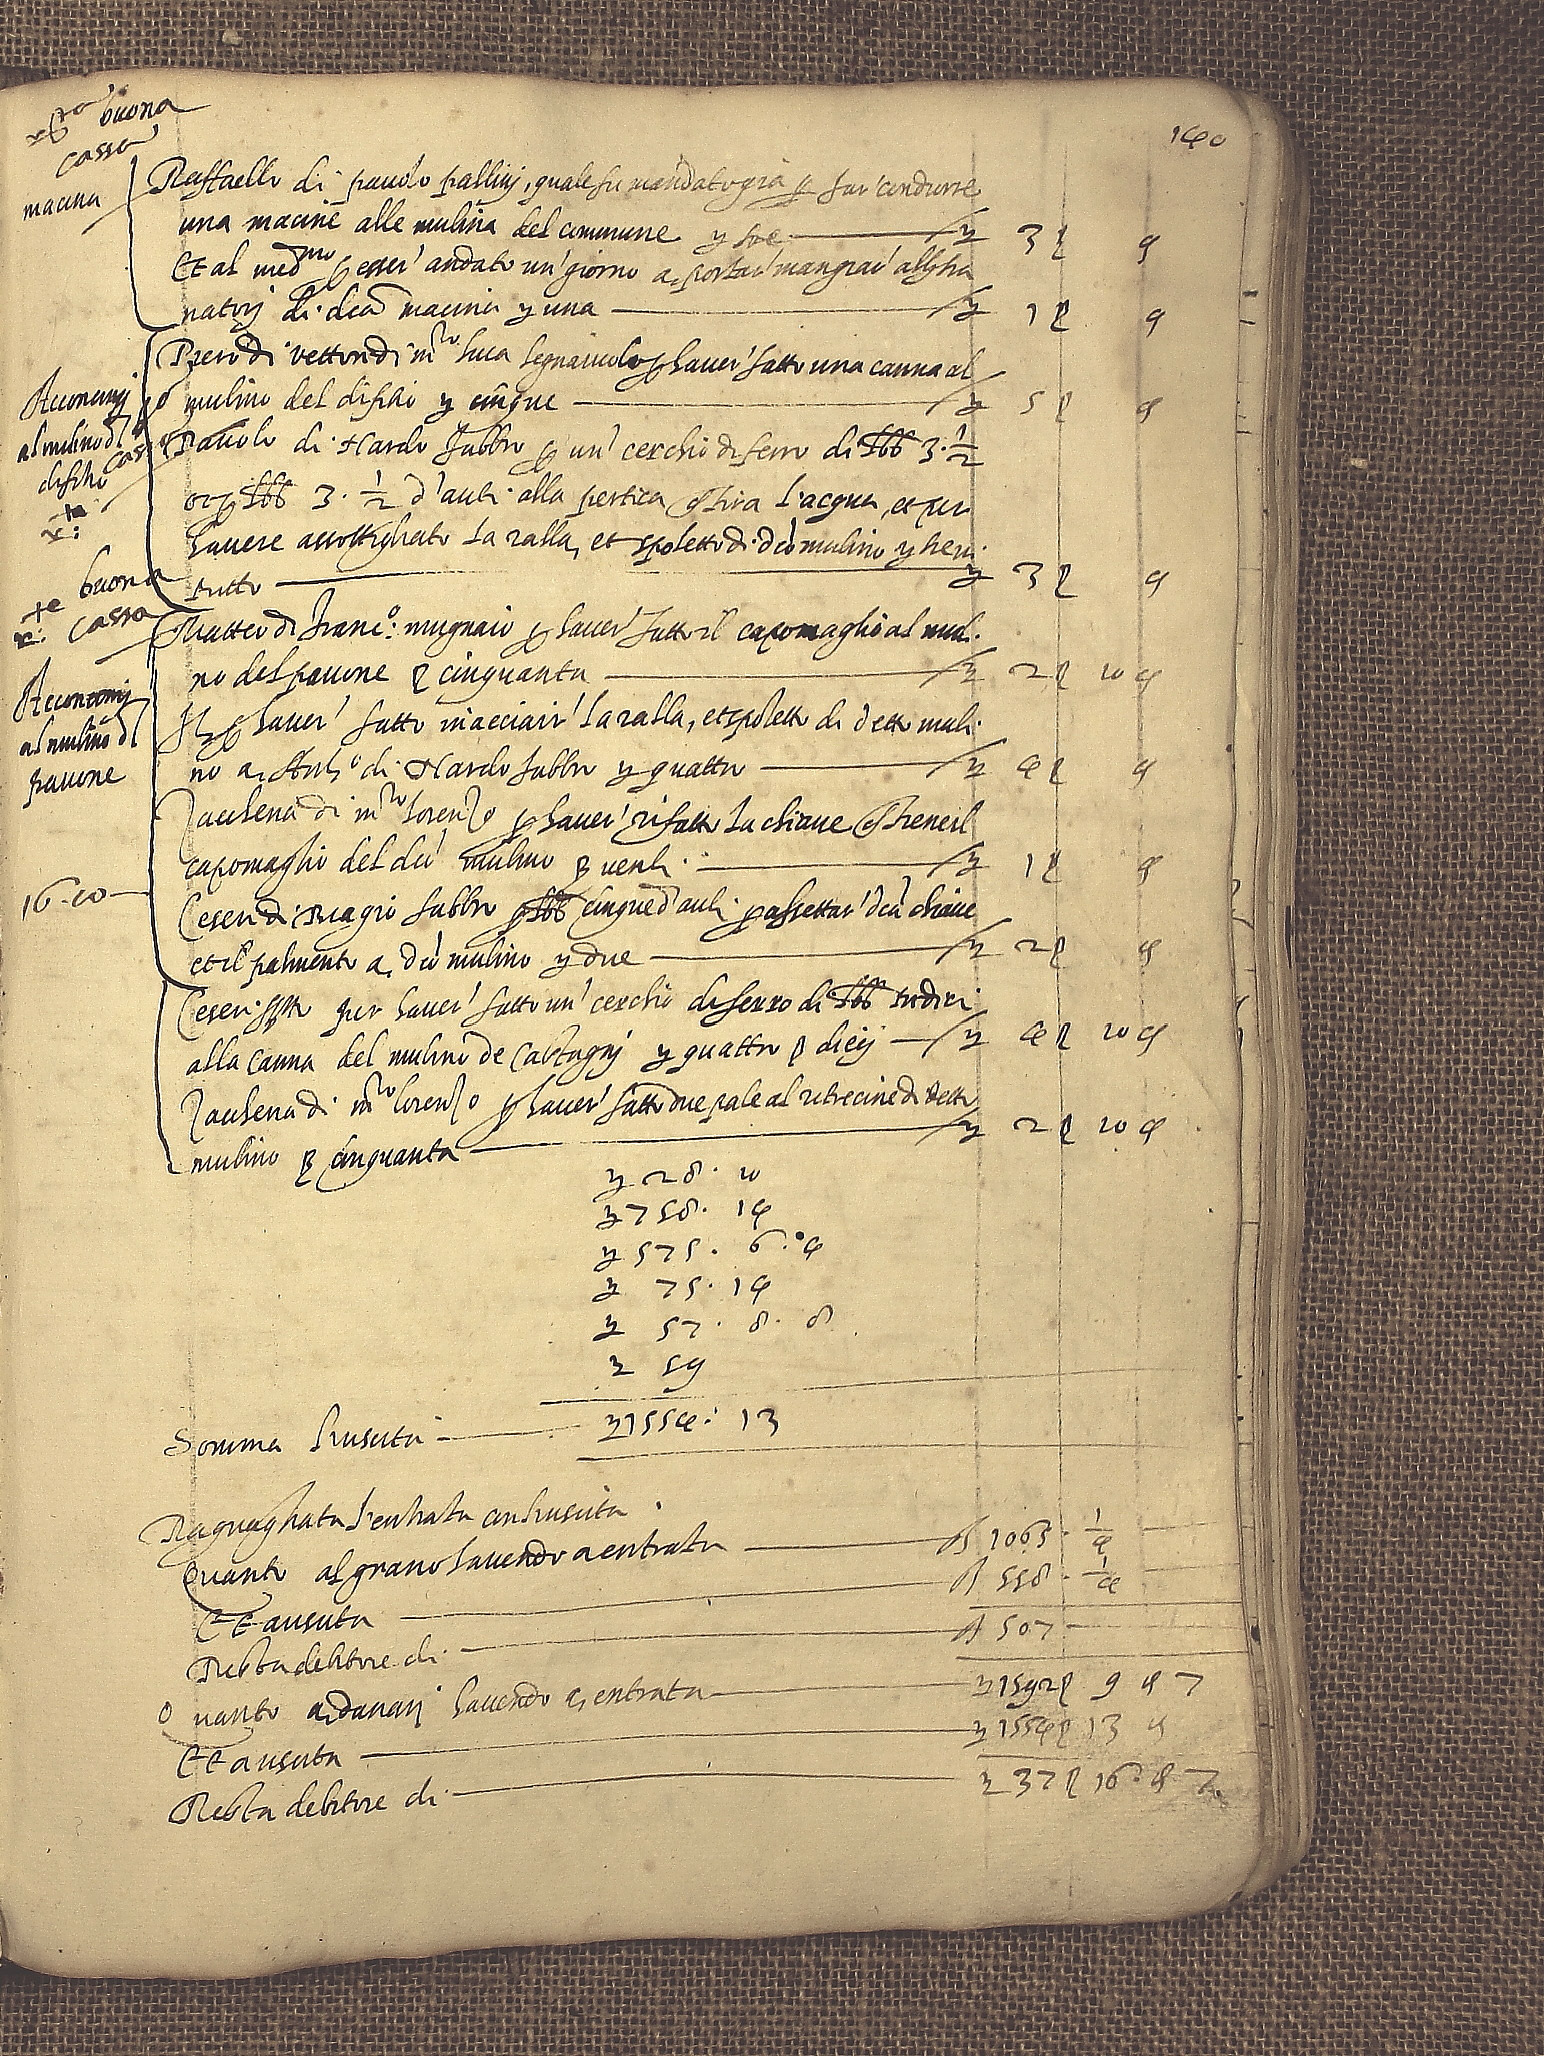 140
buona
cassa
macina
Raffaello di pauolo pallinj, quale fu mandato gia p far' condurre
una macine alle mulina del commune y tre — y 3 β g
Et al med.mo p esser' andato un' giorno a, portar' mangiar' alli tra
natorj di d.ca macina y una — y 1 β g
Acconcimj
al mulino d
Piero di vettori di m.ro luca legnaiuolo p hauer' fatto una canna al
mulino del disfhi y cinque — y 5 β g
Pauolo di Nardo fabbro p un' cerchio di ferro di lbb 3. 1/2
lbb 3. 1/2 d'auti alla pertica che tira l'acqua, et per
hauere assottigliato la ralla, et spoletto di d.co mulino y tre in
tutto — y 3 β g
buona
cassa
Matteo di franc.o mugnaio p hauer' fatto il capomaglio al muli-
no del pauone β cinquanta — y 2 β 10 g
Acconcimj
al mulino d
pauone
p hauer' fatto inacciair' la ralla, et spoletto di detto muli-
no a, di Nardo fabbro y quattro — y 4 β g
Zaccheria di m.ro lorenzo p hauer' rifatto la chiaue che tiene il
capomaglio del d.co mulino β venti — y 1 β g
16.10
Ceseri di Biagio fabbro p lbb cinque d'auti p assettar' d.ca chiaue
et il palmento a, d.co mulino y due — y 2 β g
Ceseri sop.to per hauer' fatto un' cerchio di ferro di lbb tredici
alla canna del mulino de Castagnj y quattro β diecj — y 4 β 10 g
Zaccheria di m.ro lorenzo p hauer' fatto due pale al ritrecine di detto
mulino β cinquanta — y 2 β 10 g
y 28. 10
y 758. 14
y 575. 6. 4
y 75. 14
y 57. 8. 8
y 59
Somma l'uscita — y 1554. 13
Raguagliata l'entrata con l'uscita.
Quanto al grano hauendo a entrata — st 1065. 1/4
Et a uscita — st 558. 1/4
Resta debitore di — st 507
Quanto a, danarj hauendo a, entrata — y 1592 β 9 d 7
Et a uscita — y 1554 β 13 d
Resta debitore di — y 37 β 16 d 7